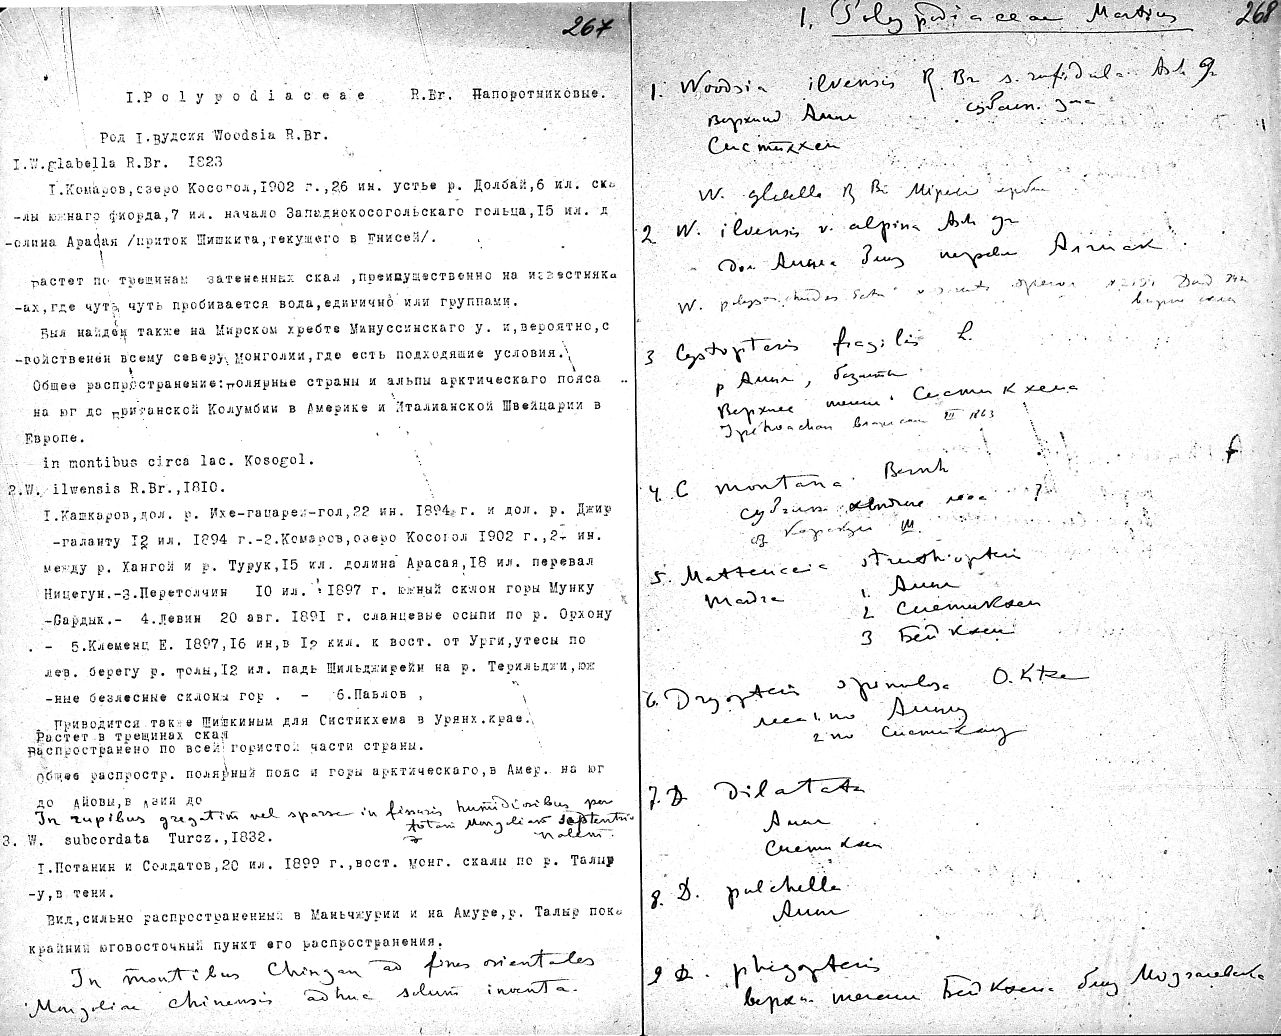 267
I.Polypodiaceae R.Br. Папоротниковые.
Род I.Вудсия Woodsia R.Br.
I.W.glabella R.Br. I823
I.Комаров,озеро Косогол,I902 г.,26 ин. устье р. Долбай,6 ил. ска
-лы южнаго фиорда,7 ил. начало Западнокосогольскаго гольца,I5 ил. д
-олина Арасая /приток Шишкита,текущего в Енисей/.
растет по трещинам затененных скал ,преимущественно на известняка
-ах,где чуть чуть пробивается вода,единично или группами.
Был найден также на Мирском хребте Минуссинскаго у. и,вероятно,с
-войственен всему северу монголии,где есть подходящие условия.
Общее распространение:полярные страны и альпы арктическаго пояса
на юг до британской Колумбии в Америке и Италианской Швейцарии в
Европе.
in montibus circa lac. Kosogol.
2.W. ilwensis R.Br.,I810.
I.Кашкаров,дол. р. Ихе-гацарел-гол,22 ин. I894 г. и дол. р. Джир
-галанту I2 ил. I894 г.-2.Комаров,озеро Косогол I902 г.,2- ин.
между р. Хангой и р. Турук,I5 ил. долина Арасая,I8 ил. перевал
Ницегун.-3.Перетолчин I0 ил. I897 г. южный склон горы Мунку
-Сардык.- 4.Левин 20 авг. I891 г. сланцевые осыпи по р. Орхону
- 5.Клеменц Е. I897,I6 ин,в I2 кил. к вост. от Урги,утесы по
лев. берегу р. толы,I2 ил. падь Шильджирейи на р. Терильджи,юж
-ные безлесные склоны гор . - 6.Павлов ,
Приводится также Шишкиным для Систикхема в Урянх.крае.
Растет в трещинах скал
Распространено по всей гористой части страны.
Общее распростр. полярный пояс и горы арктическаго,в Амер. на юг
до Айовы,в Азии до
In rupibus gregatim vel sparse in fissuris humidioribus per
totam Mongoliam septentrio
nalem.
3. W. subcordata Turcz.,I832.
I.Потанин и Солдатов,20 ил. I899 г.,вост. монг. скалы по р. Талыр
-у,в тени.
Вид,сильно распространенный в Маньчжурии и на Амуре,р. Талыр пока
крайний юговосточный пункт его распространения.
In montibus Chingan ad fines orientales
Mongoliae chinensis adhuc solum inventa.
268
1. Polypodiaceae Martius
1. Woodsia ilvensis R Br s. rufidula Asch Gr
Верхний Амыл субальп. зона
Систикхем
W. glabella R Br
2 W. ilvensis v. alpina Asch gr
дол Амыла близ перев
W.
3 Cystopteris fragilis L.
р Амыл,
Верхнее течен. Систикхема
III 1863
4. C montana Bernh
субальп хвойные леса ?
III.
5. Matteuccia struthiopteris
Todra
1. Амыл
2 Систикхем
3 Бейкхем
6. Dryopteris spinulosa O. Ktze
леса 1. по Амылу
2 по Систикхему
7. D dilatata
Амыл
Систикхем
8. D. pulchella
Амыл
9 D. phegopteris
верхн. течении Бейкхема близ